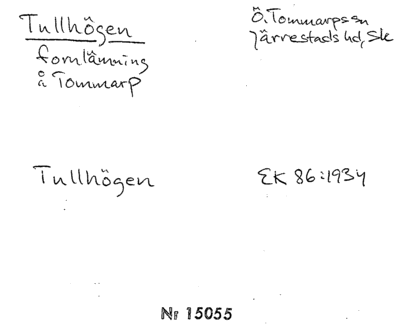 Tullhögen
fornlämning
å Tommarp
Ö. Tommarps sn
Järrestads hd, Sk
Tullhögen
EK 86:1934
Nr 15055